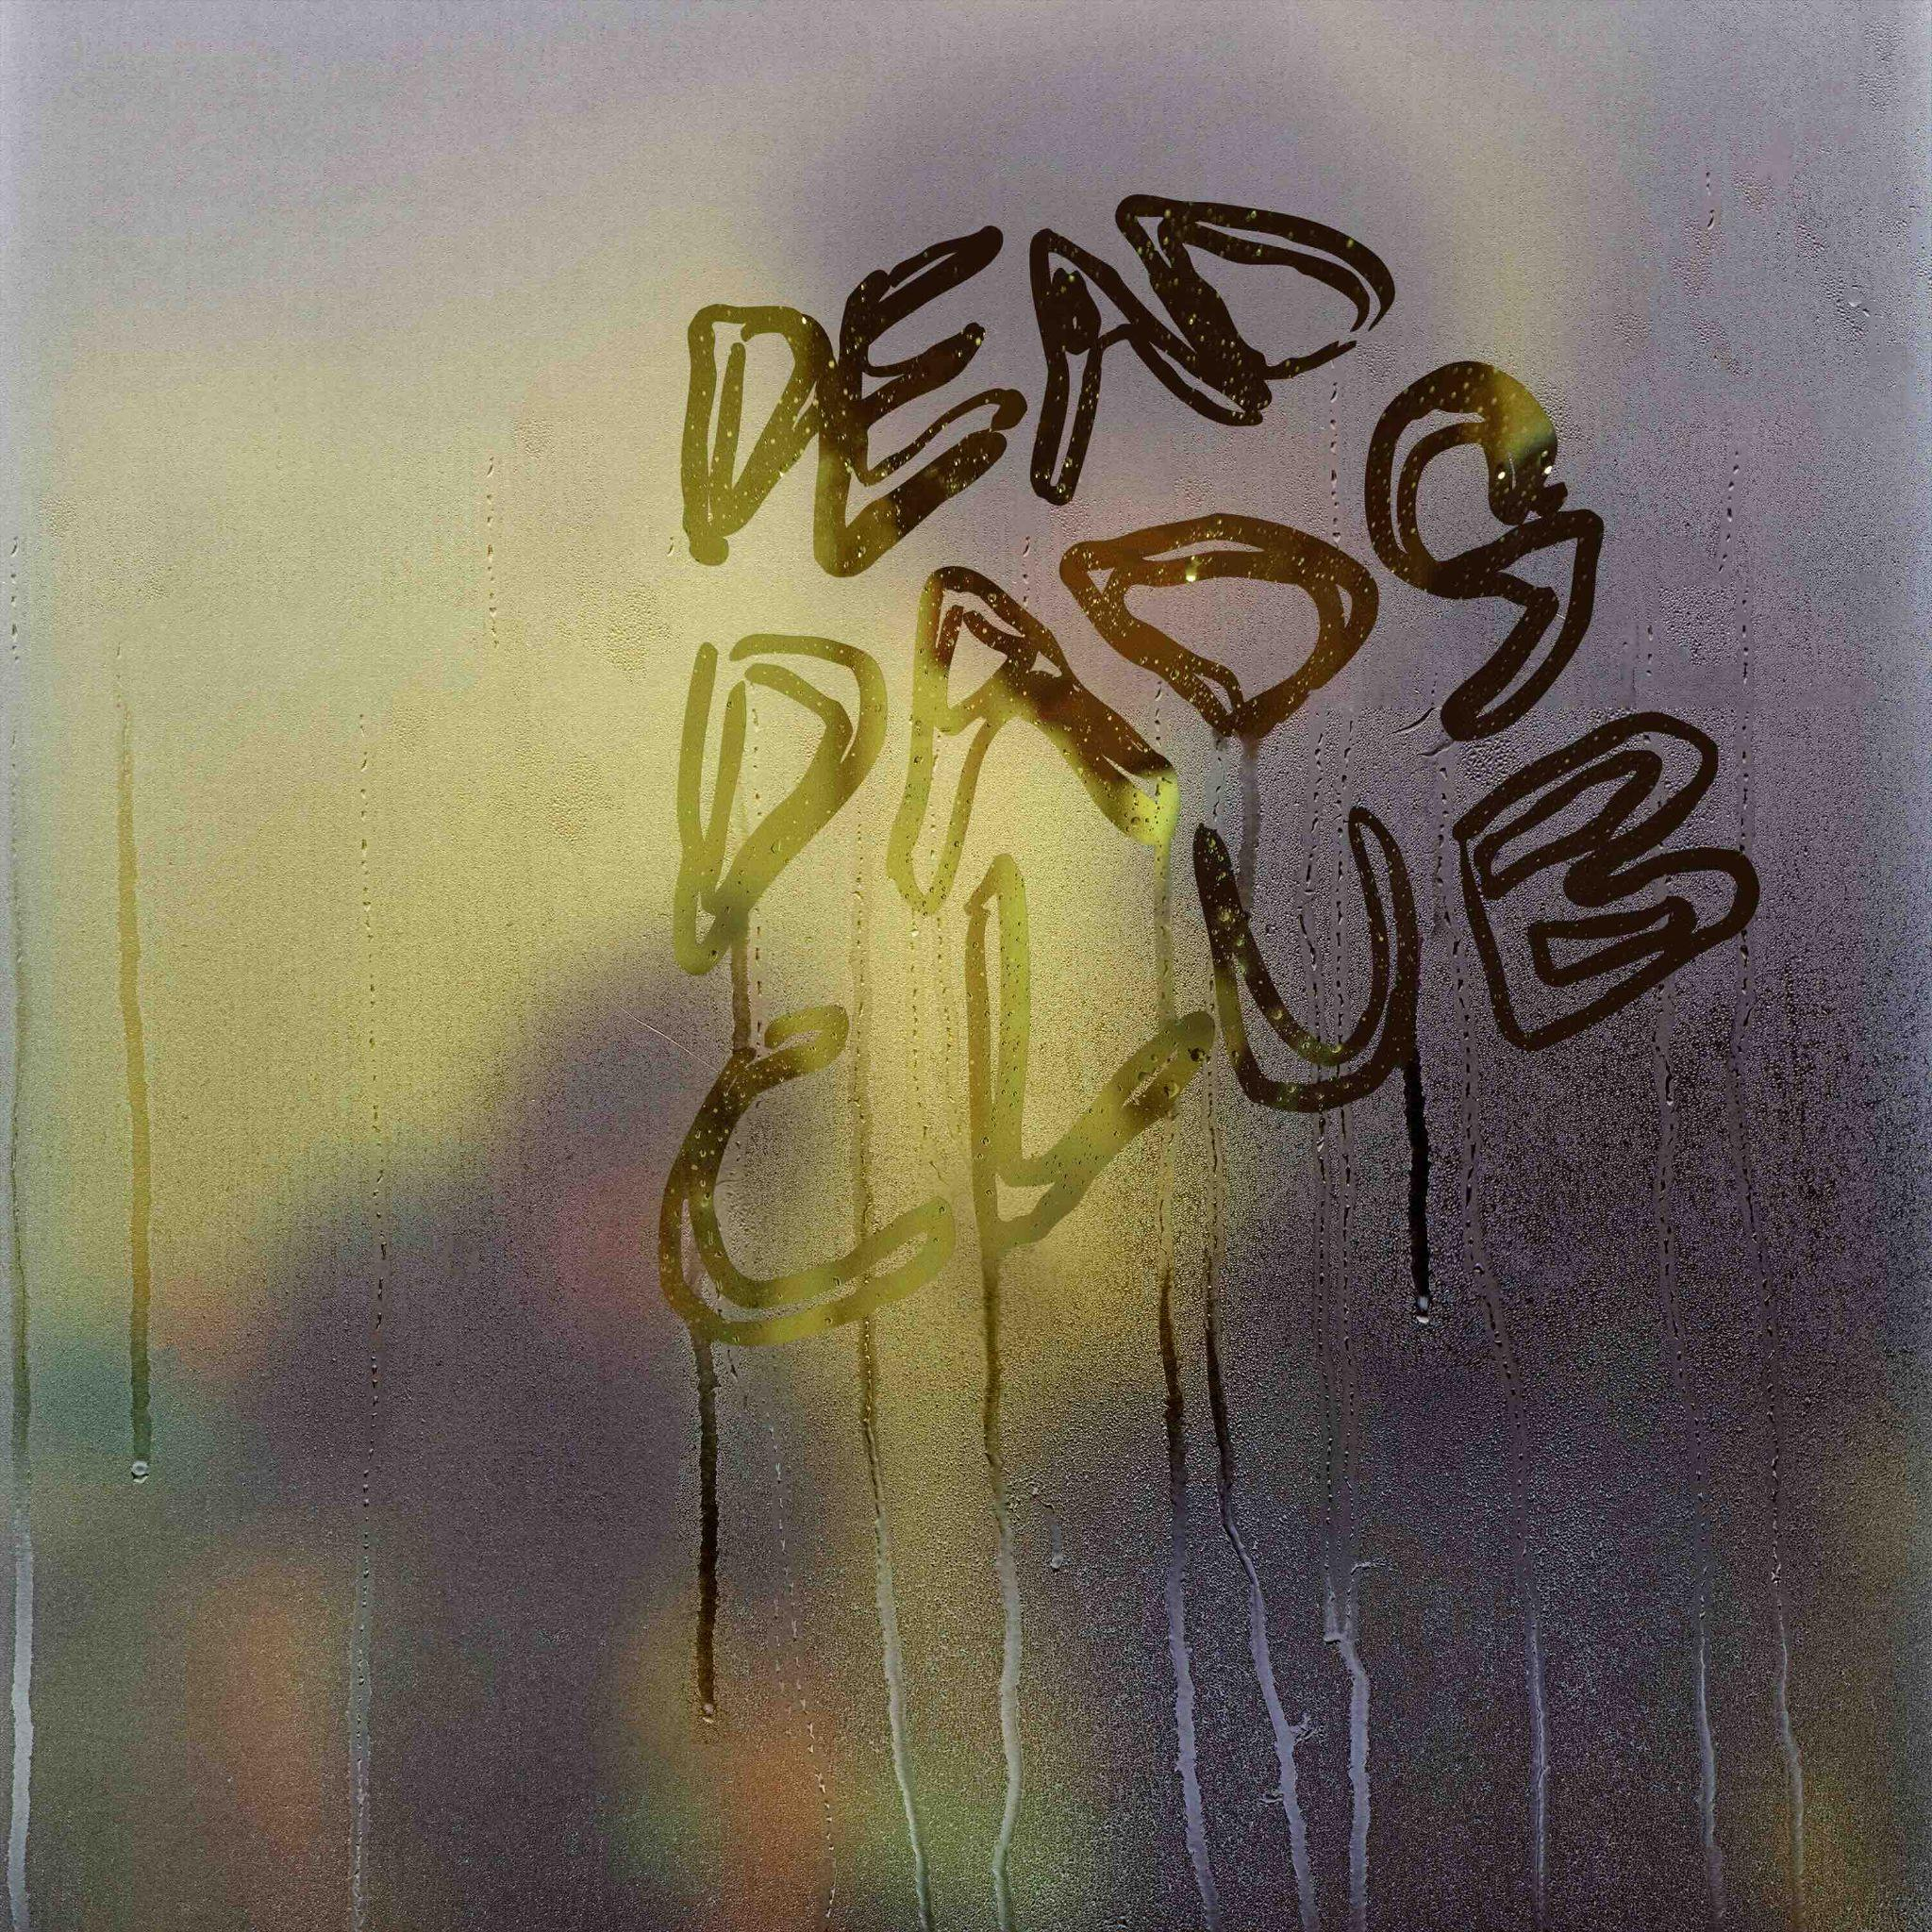 DEAD
DADS
CLUB